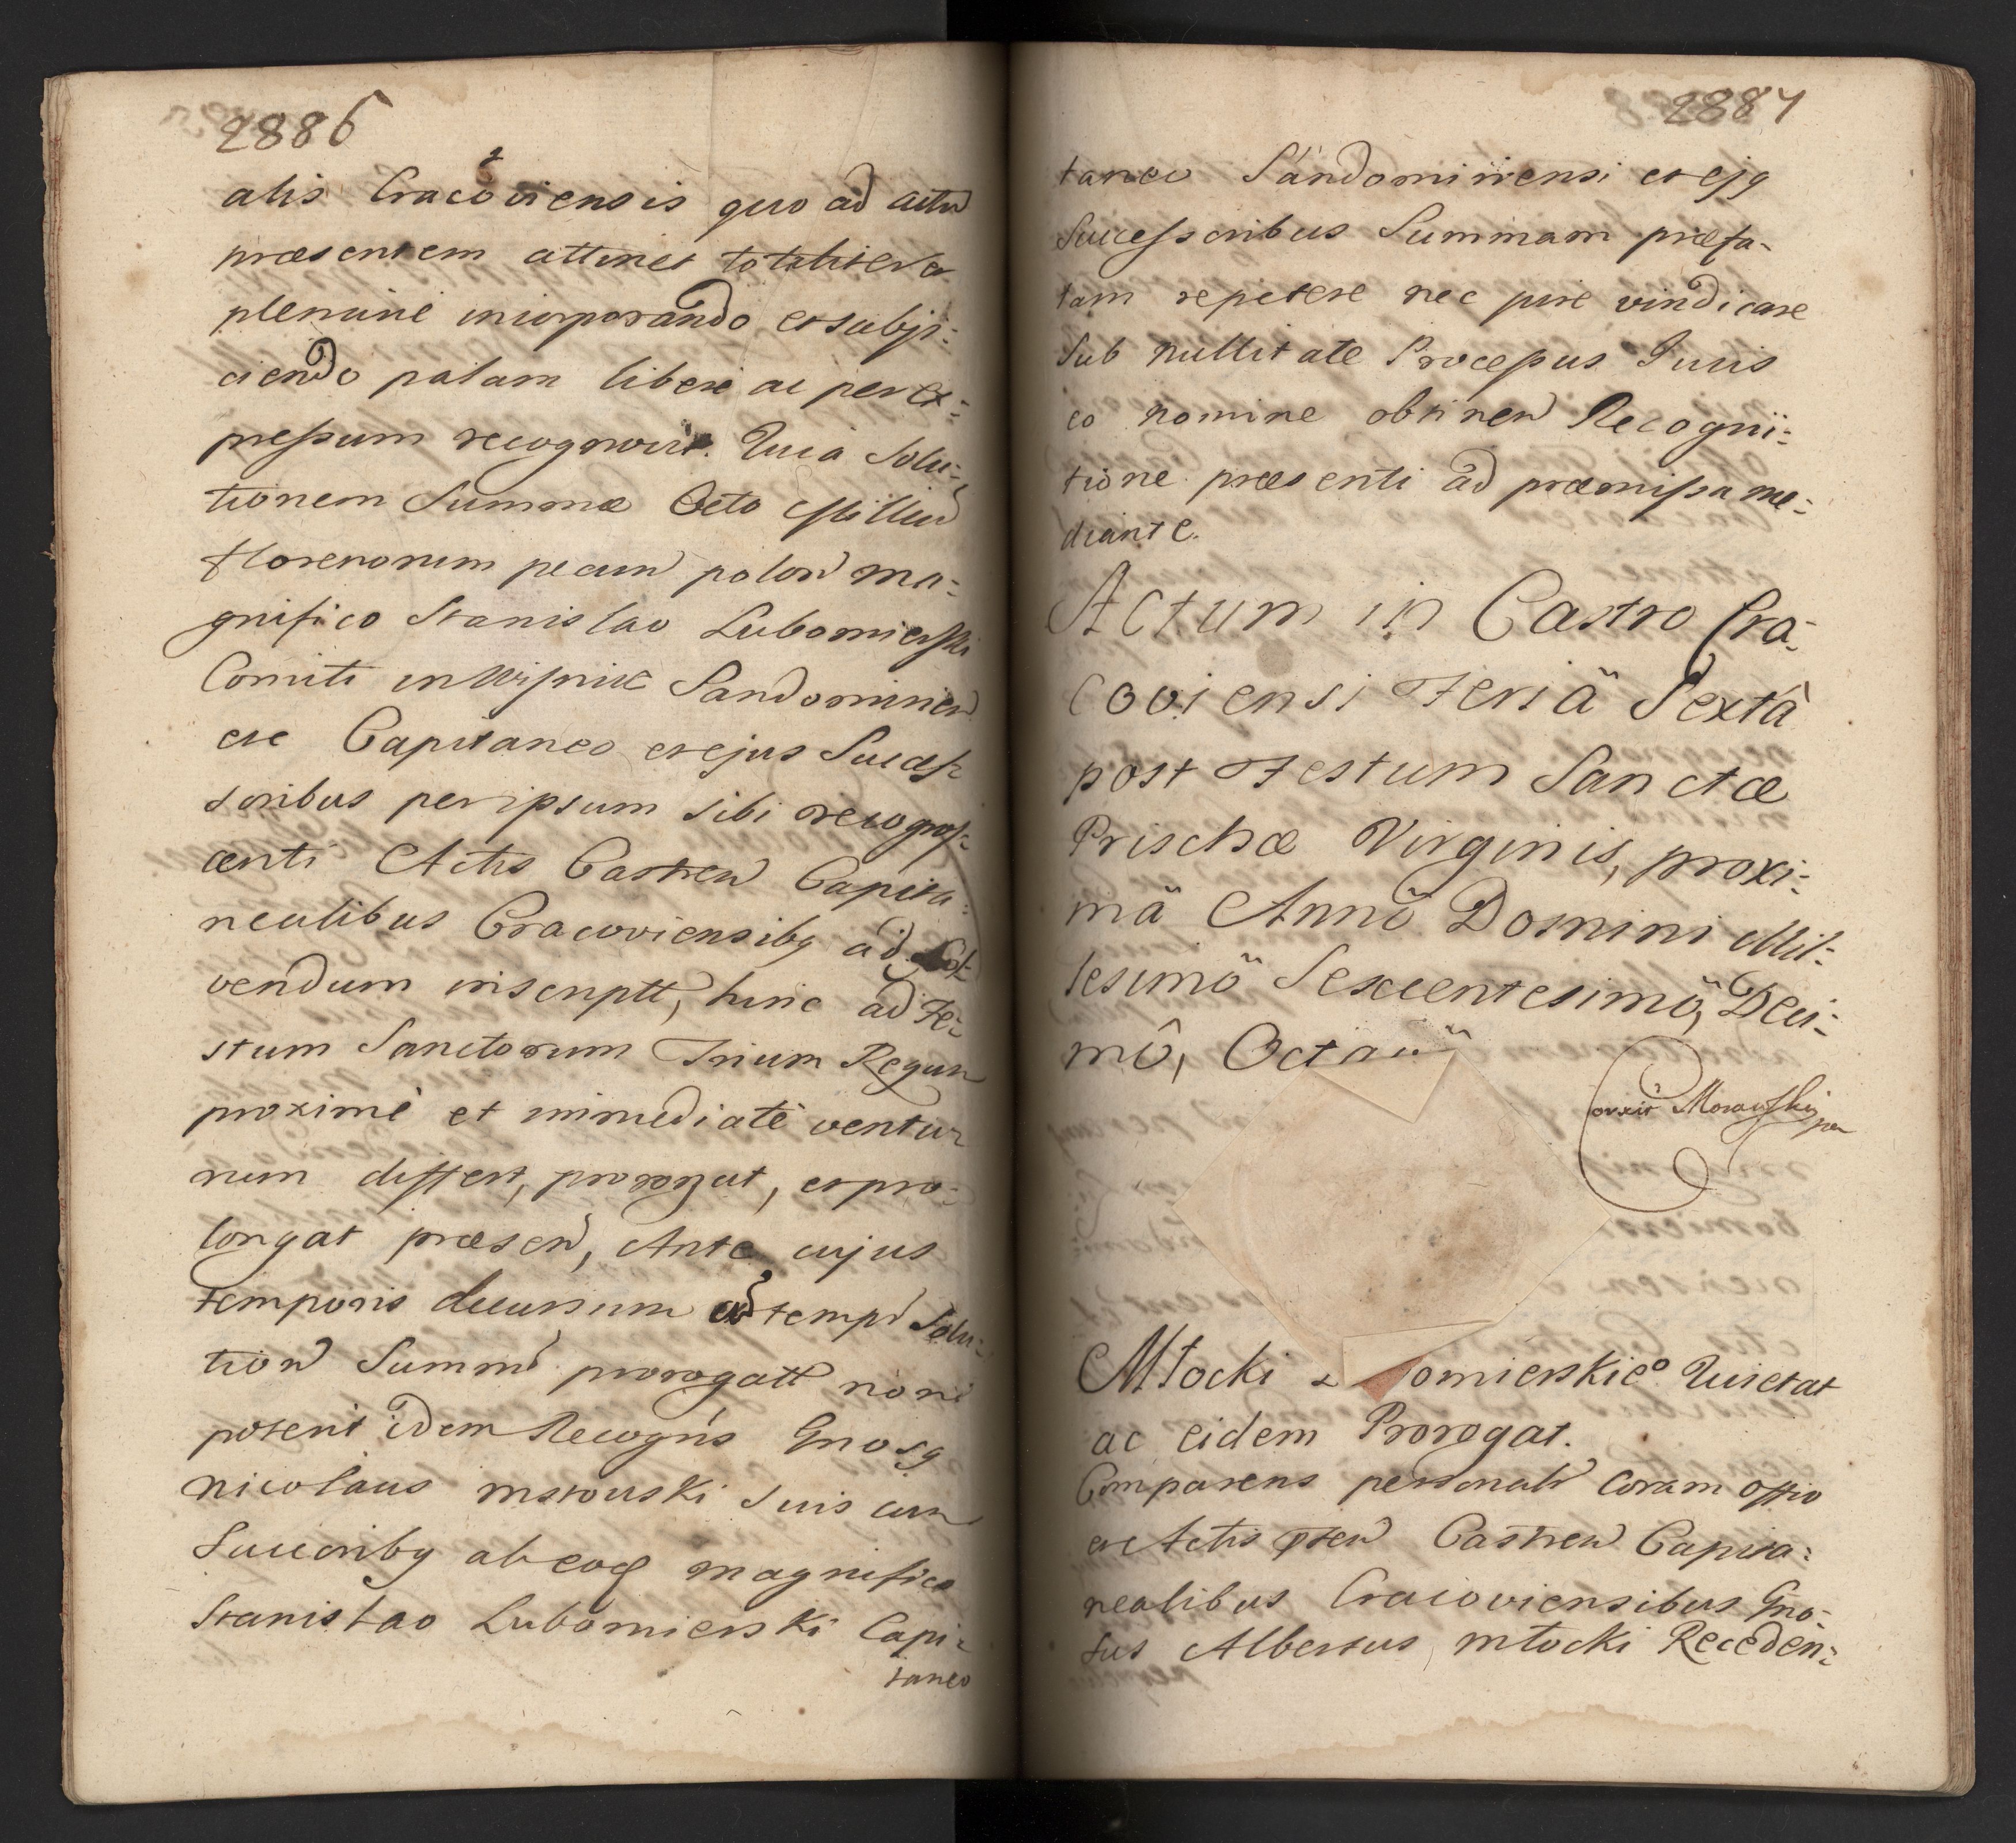 2886
alis Cracoviensis quo ad actum
præsentem attinet totaliter et
plenariè incorporando et subji-
ciendo palam liberè ac per ex-
pressum recognovit. Quia Solu-
tionem Summæ Octo Milliũ
florenorum pecun polon ma-
gnifico Stanislao Lubomierski
Comiti in Wisnice Sandomirien
etc Capitaneo et ejus Success-
soribus per ipsum sibi recognos-
centi Actis Castren Capita-
nealibus Cracoviensibq ad Sol-
vendum inscriptt, hinc ad Fe-
stum Sanctorum Trium Regum
proximè et immediatè ventu-
rum differt, prorogat, et pro-
longat præsen, Ante cujus
temporis decursum ad temps Solu-
tion Summæ prorogatt non
poterit idem Recogns Gnosq
Nicolaus Mstowski Suis cum
Succribq ab eod magnifico
Stanislao Lubomierski Capi-
taneo
2887
taneo Sandomiriensi et ejq
Successoribus Summam præfa-
tam repetere nec jure vindicare
Sub nullitate Processus Juris
eo nomine obtinen Recogni-
tione præsenti ad præmissa me-
diante.
Actum in Castro Cra-
coviensi Feriâ Sextâ
post Festum Sanctæ
Prischæ Virginis, proxi-
mâ Annô Domini Mil-
lesimô Sexcentesimô, Deci-
mô, Octavô
Correxit Morawski
Młocki omierskie° Quietat
ac eidem Prorogat.
Comparens personalr Coram Offio
et Actis pnten Castren Capita-
nealibus Cracoviensibus Gno-
sus Albertus Młocki Receden-